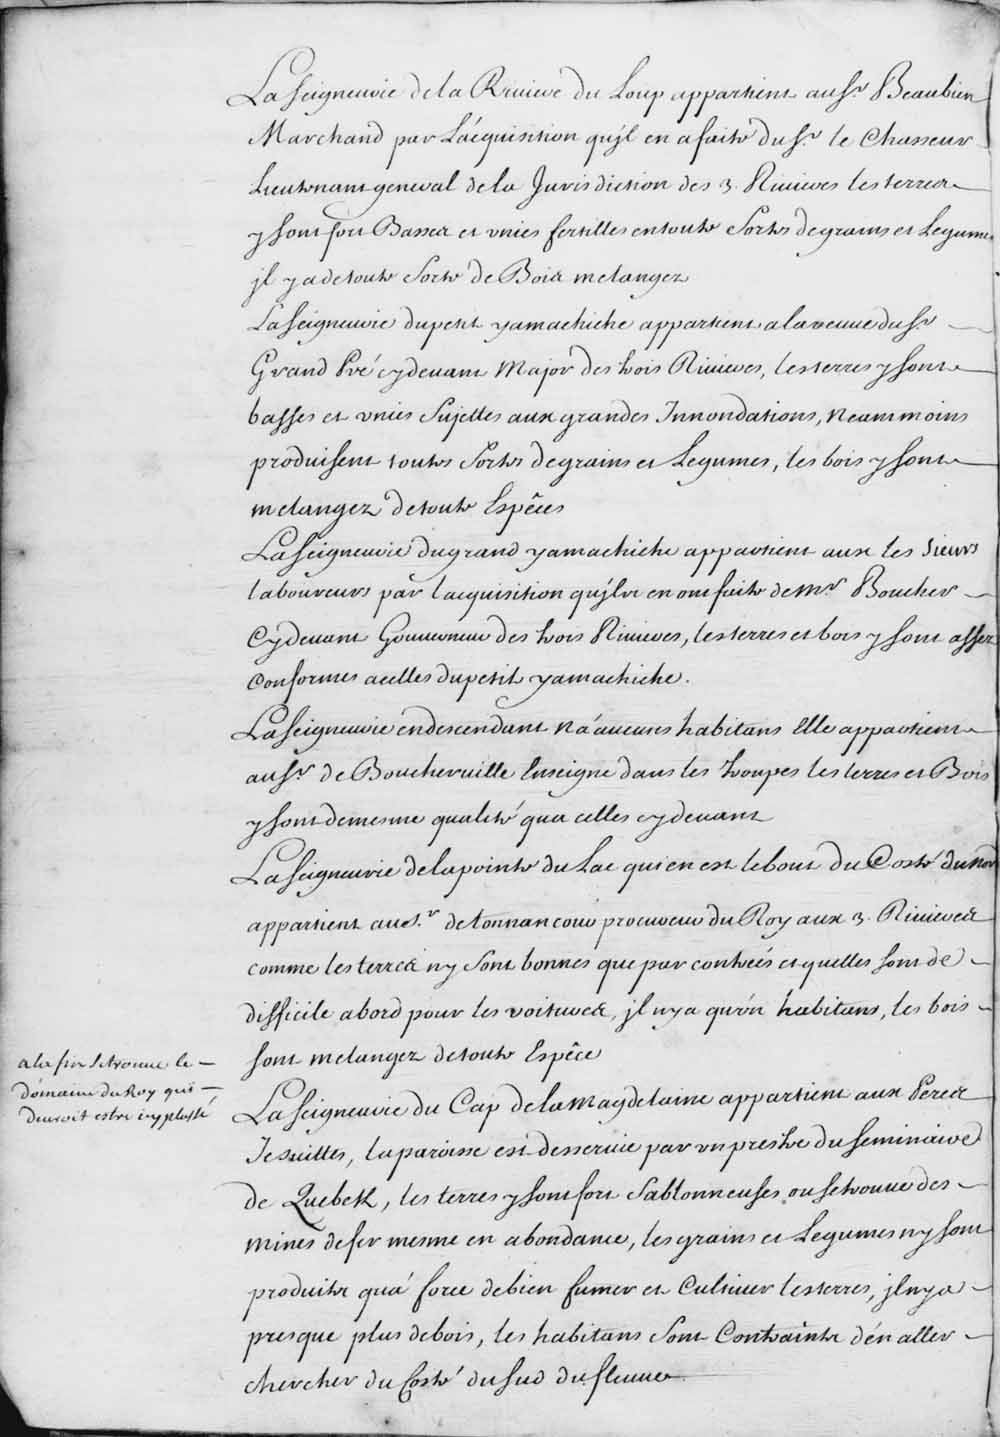 La seigneurie de la Riviere du Loup appartient au Sr. Beaubien
Marchand par L'acquisition qu'jl en a faite du Sr. le Chasseur
Lieutenant general de la Jurisdiction des 3. Rivieres les terres
y sont fort Basses et unies fertilles en toute Sorte de grains et Legumes
jl y a de toute Sorte de Bois melangez
La seigneurie du petit yamachiche appartient a la veuve du Sr.
Grand Pré cydevant Major des trois Rivieres, les terres y sont
basses et unies Sujettes aux grandes Jnnondations, neammoins
produisent toutes Sortes de grains et Legumes, les bois y sont
melangez de toute Espêces
La seigneurie du grand yamachiche appartient aux les Sieurs
laboureurs par l'acquisition qu'jls en ont faite de Mr. Boucher
Cydevant Gouverneur des trois Rivieres, les terres et bois y sont assez
Conformes a celles du petit yamachiche.
La seigneurie en descendant n'a aucuns habitans Elle appartient
au Sr. de Boucherville Enseigne dans les troupes les terres et Bois
y sont de mesme qualité que celles cydevant
La seigneurie de la pointe du Lac qui en est le bout du Costé du nord
appartient au S.r de tonnancour procureur du Roy aux 3. Rivieres
comme les terres n'y sont bonnes que par contrées et quelles sont de
difficile abord pour les voitures, jl n'y a qu'un habitans, les bois
sont melangez de toute Espêce
a la fin se trouve le
domaine du Roy qui
devroit estre icy placé
La seigneurie du Cap de la Magdelaine appartient aux Peres
Jesuittes, la paroisse est desservie par un prestre du seminaire
de Quebek, les terres y sont fort Sablonneuses ou se trouve des
mines de fer mesme en abondance, les grains et Legumes n'y sont
produits qu'a force de bien fumer et Cultiver les terres, jl n'y a
presque plus de bois, les habitans sont Contraints d'en aller
chercher du Costé du sud du fleuve